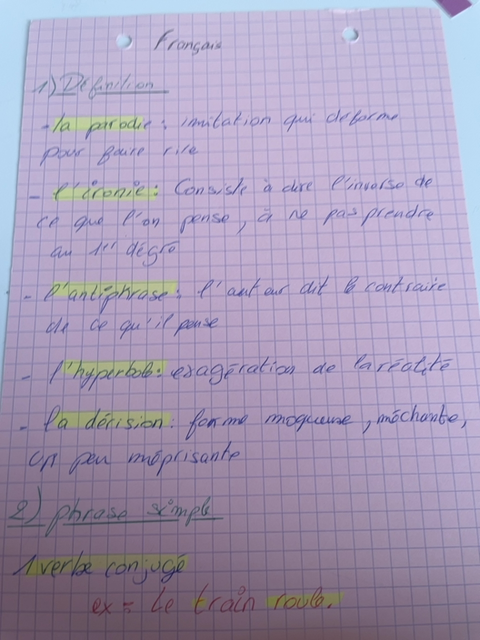 Français
1) Définition
- la parodie : imitation qui déforme
pour faire rire
- l'ironie : Consiste à dire l'inverse de
ce que l'on pense, à ne pas prendre
au 1er degré
- l'antiphrase : l'auteur dit le contraire
de ce qu'il pense
- l'hyperbole : exagération de la réalité
- la dérision : forme moqueuse, méchante,
un peu méprisante
2) phrase simple
1 verbe conjugé
ex = Le train roule.